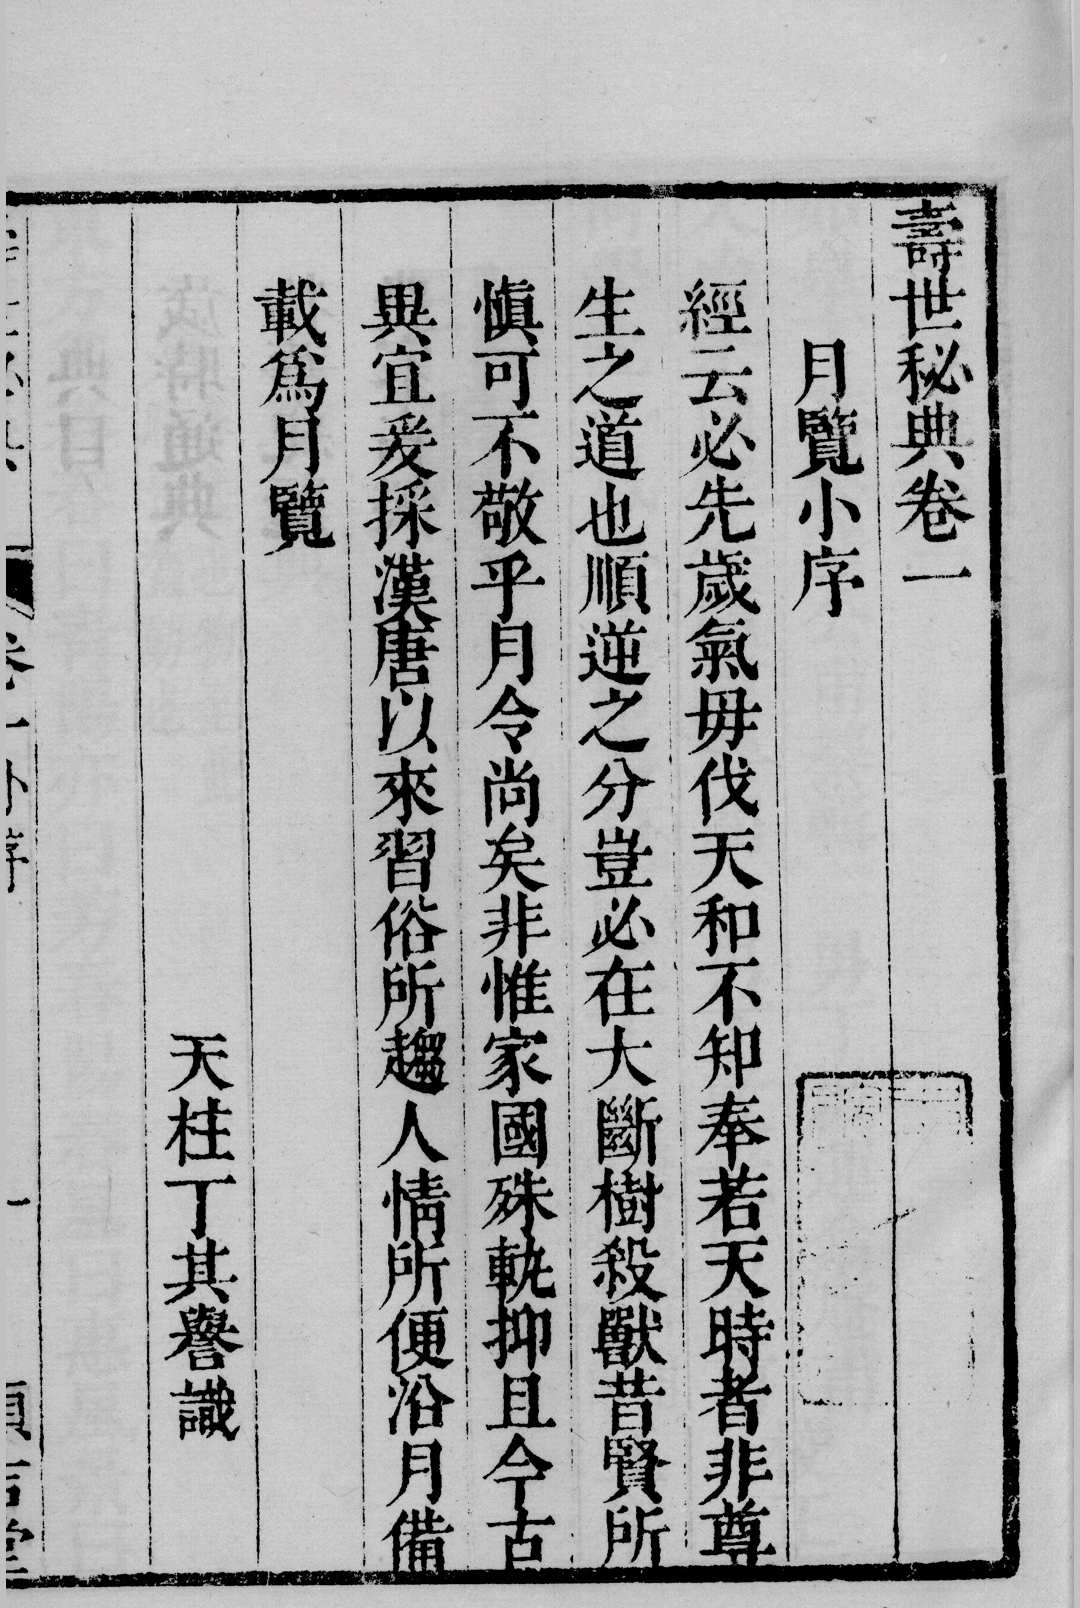 壽世秘典卷一
月覽小序
經云必先歲氣毋伐天和不知奉若天時者非尊
生之道也順逆之分豈必在大斷樹殺獸昔賢所
愼可不敬乎月令尚矣非惟家國殊軌抑且今古
異宜爰採漢唐以來習俗所趨人情所便沿月備
載爲月覽
天柱丁其譽識